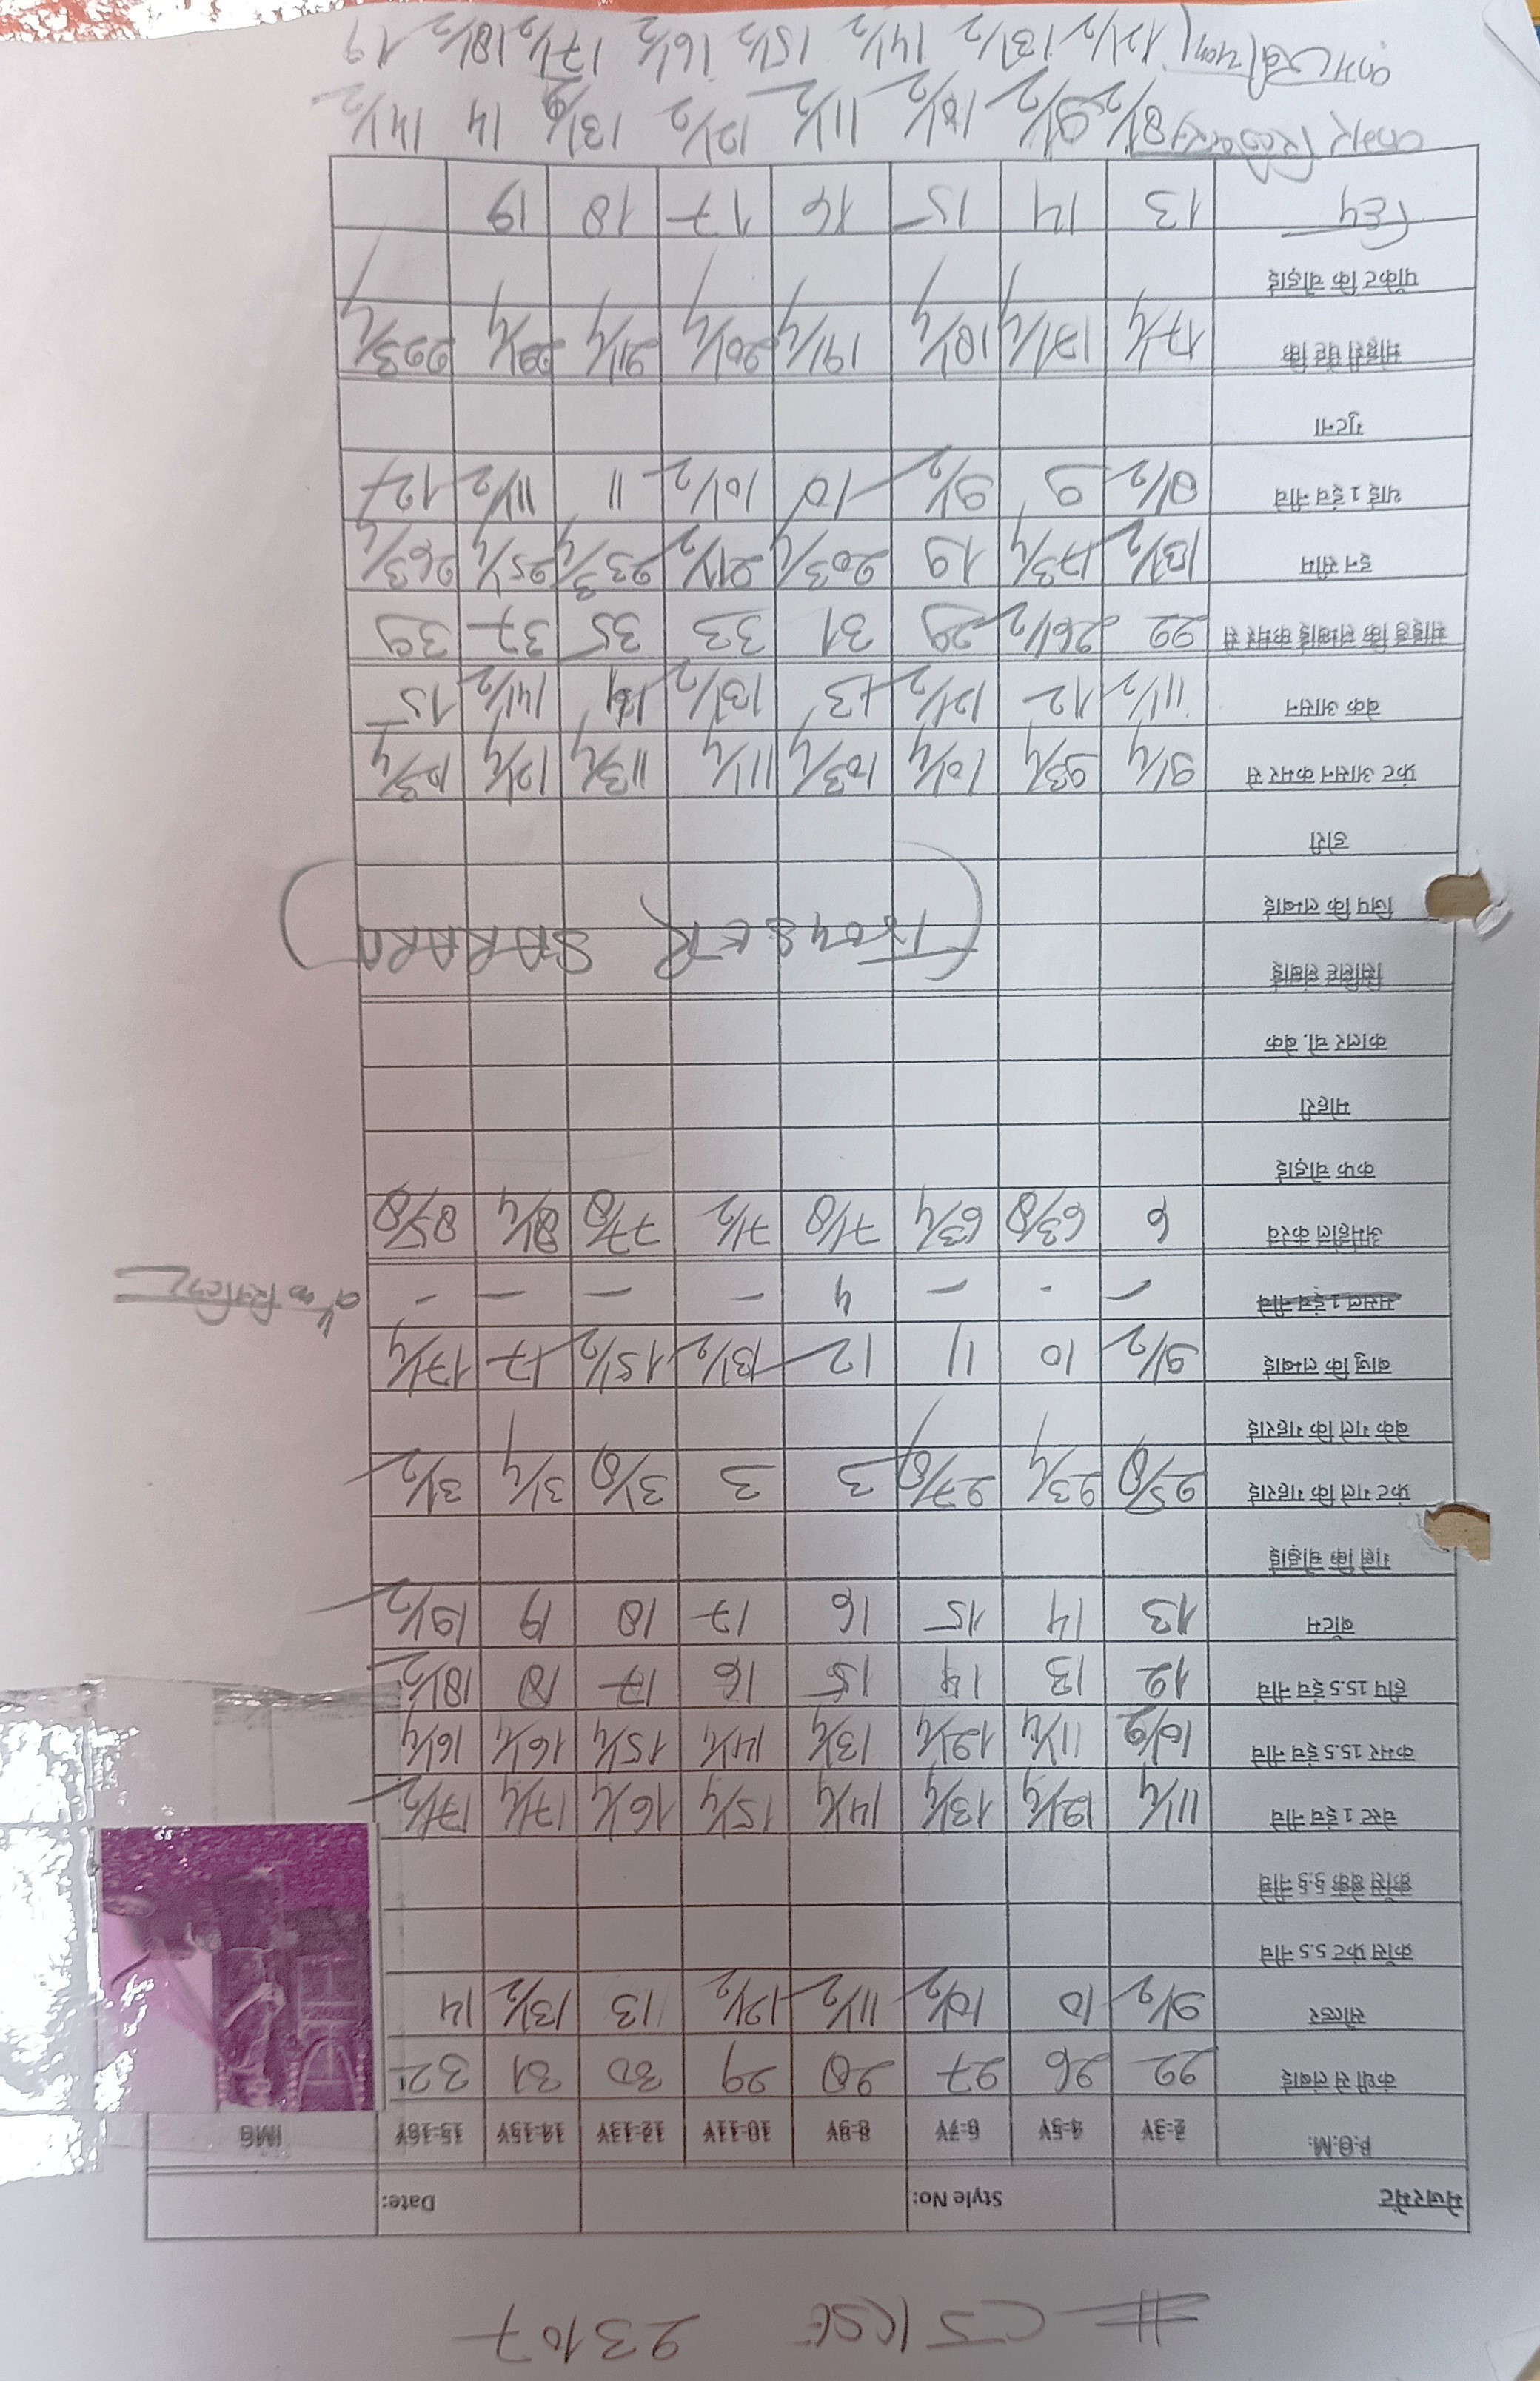 # CSKSE 23107
मेजरमेंट Style No: Date:
P.O.M. 2-3Y 4-5Y 6-7Y 8-9Y 10-11Y 12-13Y 14-15Y 15-16Y IMG
कंधी से लंबाई 22 26 27 28 29 30 31 32
सोल्डर 9½ 10 10½ 11½ 12½ 13 13½ 14
क्रॉस फ्रंट 5.5 नीचे
क्रॉस बेक 5.5 नीचे
चेस्ट 1 इंच नीचे 11¼ 12¼ 13¼ 14¼ 15¼ 16¼ 17¼ 17½
कमर 15.5 इंच नीचे 11¼ 12¼ 13¼ 14¼ 15¼ 16¼ 16¼
हीप 15.5 इंच नीचे 12 13 14 15 16 17 18 18½
बॉटम 13 14 15 16 17 18 19 19½
गले कि चौड़ाई
फ्रंट गले कि गहराई 25/8 2¾ 27/8 3 3 31/8 3¼ 3½
बेक गले कि गहराई
बाजु कि लम्बाई 9½ 10 11 12 13½ 15½ 17 17¼
मसल 1 इंच नीचे - - - 4 - - - -
अमहोल करव 6 63/8 6¾ 71/8 7½ 77/8 8¼ 85/8
कफ चौड़ाई
मोहरी
कालर चो. बेक
सिलिट लंबाई
(TROUSER SARARA)
जिप कि लम्बाई
डोरी
फ्रंट आसन कमर से 9¼ 9¾ 10¼ 10¾ 11¼ 11¾ 12¼ 12¾
बेक आसन 11½ 12 12½ 13 13½ 14 14½ 15
साइड कि लम्बाई कमर से 22 26½ 29 31 33 35 37 39
इन सीम 13½ 17¾ 19 20¾ 21½ 23¾ 25¼ 26¾
थाई 1 इंच नीचे 8½ 9 9½ 10 10½ 11 11½ 12
घुटना
मोहरी पेंट कि 17¼ 17¼ 18¼ 19¼ 20¼ 21¼ 22¼ 22¾
पॉकेट कि चौड़ाई
हिप 13 14 15 16 17 18 19
कमर रिलेक्स 8½ 9½ 10½ 11½ 12½ 13½ 14 14½
12½ 13½ 14½ 15½ 16½ 17½ 18½ 19